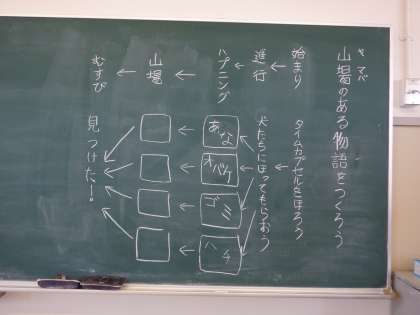 ヤマバ
山場のある物語をつくろう
始まり
タイムカプセルをほろう
進行
犬たちにほってもらおう
ハプニング
あな
オバケ
ゴミ
ハチ
山場
むすび
見つけた!